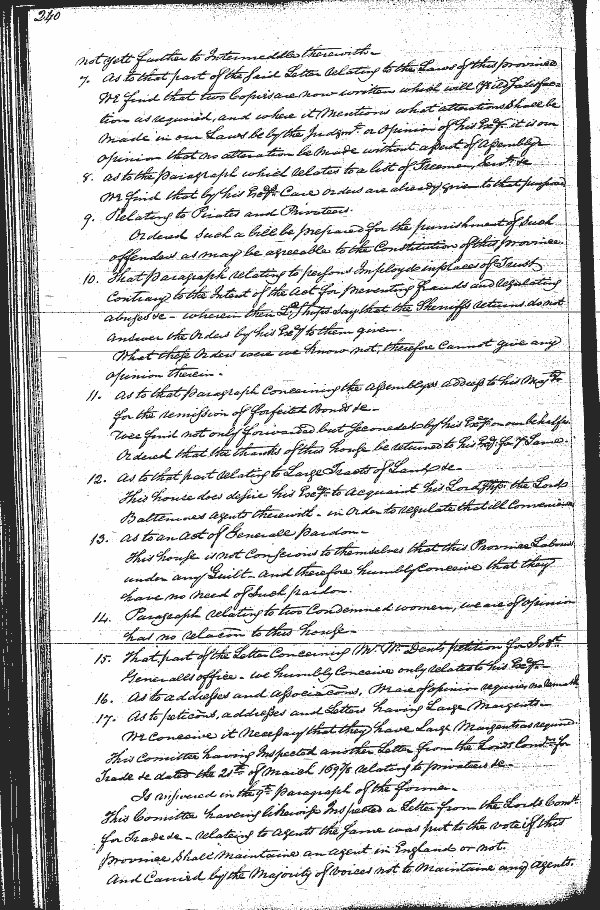 240
not yett further to Intermeddle therewith
7. As to that part of the said Letter relating to the Laws of this province
We find that two Copies are now written which will yeild Satisfac=
tion as required, and where it Mentions what alterations Shall be
made in our Laws be by the Judgmt. or Opinion of his Exy. it is our
opinion that no alteration be Made without assent of Assembly
8. As to the Paragraph which relates to a list of Freemen, Servts. &c
We find that by his Exys. Care orders are already given to that purpose
9. Relating to Pirates and Privateers.
Ordered Such a bill be prepared for the punishment of Such
offenders as may be agreeable to the Constitution of this province.
10. That Paragraph relating to persons Imployed in places of Trust
Contrary to the Intent of the Act for preventing frauds and regulating
abuses &c - wherein their Ldships say that the Sheriffs returns do not
answer the Orders by his Exy to them given.
What these Orders were we know not, therefore Cannot give any
opinion therein.
11. As to that Paragraph Concerning the Assemblys address to his Majty
for the remission of forfeited Bonds &c
Wee find not only forwarded but Seconded by his Exy. on our behalfe
Ordered that the thanks of this house be returned to his Exy. for ye Same.
12. As to that part relating to Large Tracts of Land &c
This house does desire his Exy. to Acquaint his Lordship the Lord
Baltemores Agents therewith - in Order to regulate that ill Conveniency
13. As to an Act of Generall Pardon
This house is not Conscious to themselves that this Province Labours
under any Guilt - and therefore humbly Conceive that they
have no need of Such pardon.
14. Paragraph relating to two Condemned women, we are of opinion
has no relacon to this house
15. That part of the Letter Concerning Mr. Wm. Dents petition for
Generalls office - we humbly Conceive only relates to his Exy.
16. As to addresses and Associacons, We are of opinion requires no remark
17. As to peticons, addresses and Letters having Large Margents
We Conceive it Necessary that they have Large Margents as required.
This Comittee having Inspected another Letter from the Lords Comrs. for
Trade &c dated the 21st of March 1697/8 relating to privateers &c
Is answered in the 9th. Paragraph of the former
This Comittee having likewise Inspected a Letter from the Lords Comrs.
for Trade &c - relating to Agents the Same was put to the vote if this
province Shall Maintaine an Agent in England or not.
And Carried by the Majority of voices not to Maintaine any Agents.